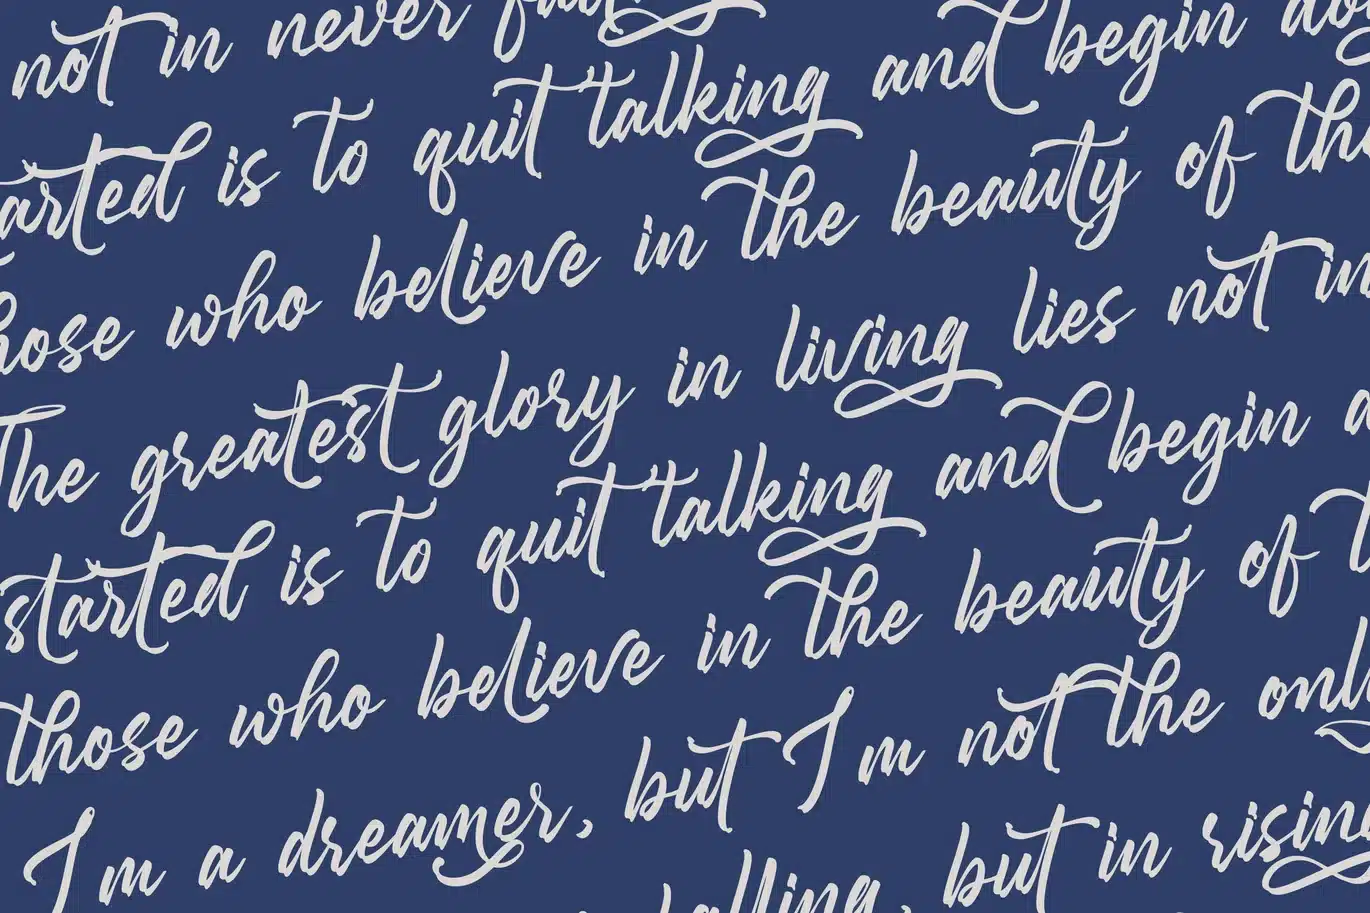 not in never
started is to quit talking and begin
those who believe in the beauty of the
The greatest glory in living lies not in
started is to quit talking and begin
those who believe in the beauty of
I'm a dreamer, but I'm not the only
but in rising